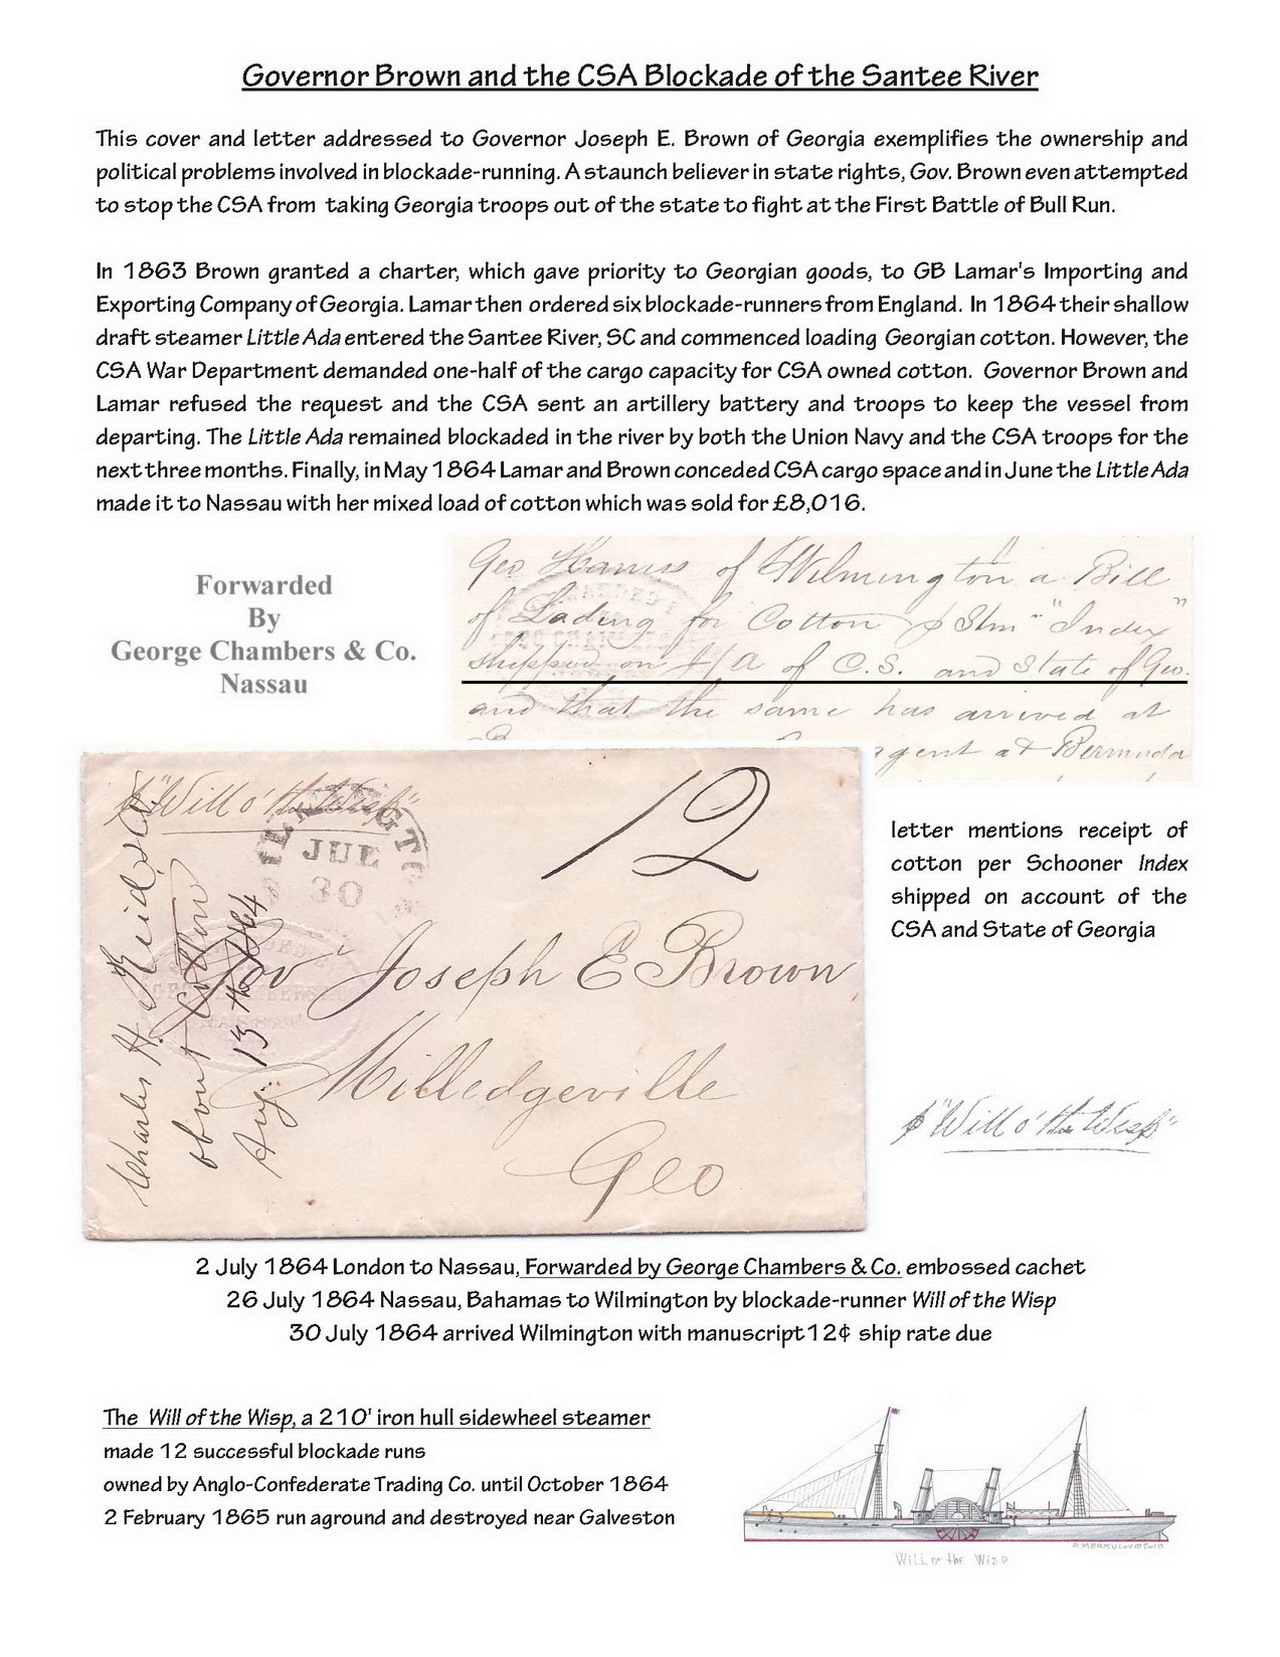 Governor Brown and the CSA Blockade of the Santee River
This cover and letter addressed to Governor Joseph E. Brown of Georgia exemplifies the ownership and
political problems involved in blockade-running. A staunch believer in state rights, Gov. Brown even attempted
to stop the CSA from taking Georgia troops out of the state to fight at the First Battle of Bull Run.
In 1863 Brown granted a charter, which gave priority to Georgian goods, to GB Lamar's Importing and
Exporting Company of Georgia. Lamar then ordered six blockade-runners from England. In 1864 their shallow
draft steamer Little Ada entered the Santee River, SC and commenced loading Georgian cotton. However, the
CSA War Department demanded one-half of the cargo capacity for CSA owned cotton. Governor Brown and
Lamar refused the request and the CSA sent an artillery battery and troops to keep the vessel from
departing. The Little Ada remained blockaded in the river by both the Union Navy and the CSA troops for the
next three months. Finally, in May 1864 Lamar and Brown conceded CSA cargo space and in June the Little Ada
made it to Nassau with her mixed load of cotton which was sold for £8,016.
Forwarded
By
George Chambers & Co.
Nassau
Geo Harriss of Wilmington a Bill
of Lading for Cotton p Stm "Index"
shipped on A/A of C.S. and State of Geo.
and that the same has arrived at
agent at Bermuda
p "Will o' the Wisp"
12
JUL
30
Gov Joseph E Brown
Milledgeville
Geo
Charles H. Reid & Co.
about Cotton
Aug. 13th 1864
letter mentions receipt of
cotton per Schooner Index
shipped on account of the
CSA and State of Georgia
p "Will o' the Wisp"
2 July 1864 London to Nassau, Forwarded by George Chambers & Co. embossed cachet
26 July 1864 Nassau, Bahamas to Wilmington by blockade-runner Will of the Wisp
30 July 1864 arrived Wilmington with manuscript 12¢ ship rate due
The Will of the Wisp, a 210' iron hull sidewheel steamer
made 12 successful blockade runs
owned by Anglo-Confederate Trading Co. until October 1864
2 February 1865 run aground and destroyed near Galveston
Will of the Wisp